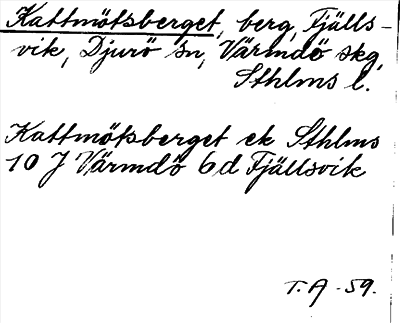 Kattmötsberget, berg, Fjälls-
vik, Djurö sn, Värmdö skg,
Sthlms l.
Kattmötsberget ek Sthlms
10 J Värmdö 6d Fjällsvik
T.A -59.